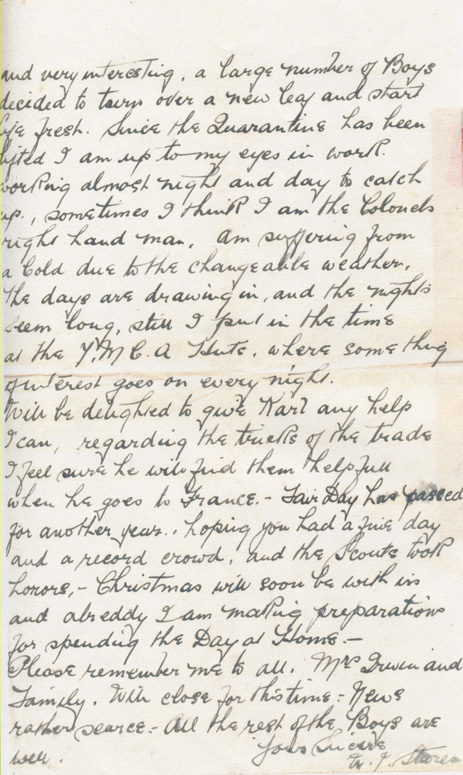 and very interesting, a large number of Boys
decided to turn over a new leaf and start
life fresh. Since the Quarantine has been
lifted I am up to my eyes in work.
working almost night and day to catch
up., sometimes I think I am the Colonels
right hand man, am suffering from
a Cold due to the changeable weather,
the days are drawing in, and the nights
seem long, still I put in the time
at the Y.M.C.A Hute, where some thig
of interest goes on every night.
Will be delighted to give Karl any help
I can, regarding the trucks of the trade
I feel sure he will find them helpfull
when he goes to France. - Fair Day has passed
for another year., hoping you had a fine day
and a record crowd, and the Scouts took
honors, - Christmas will soon be with in
and alreddy I am making preparations
for spending the Day at Home. -
Please remember me to all. Mrs Irwin and
Family. Will close for this time :- News
rather scarce :- All the rest of the Boys are
well.
Yours Sincere